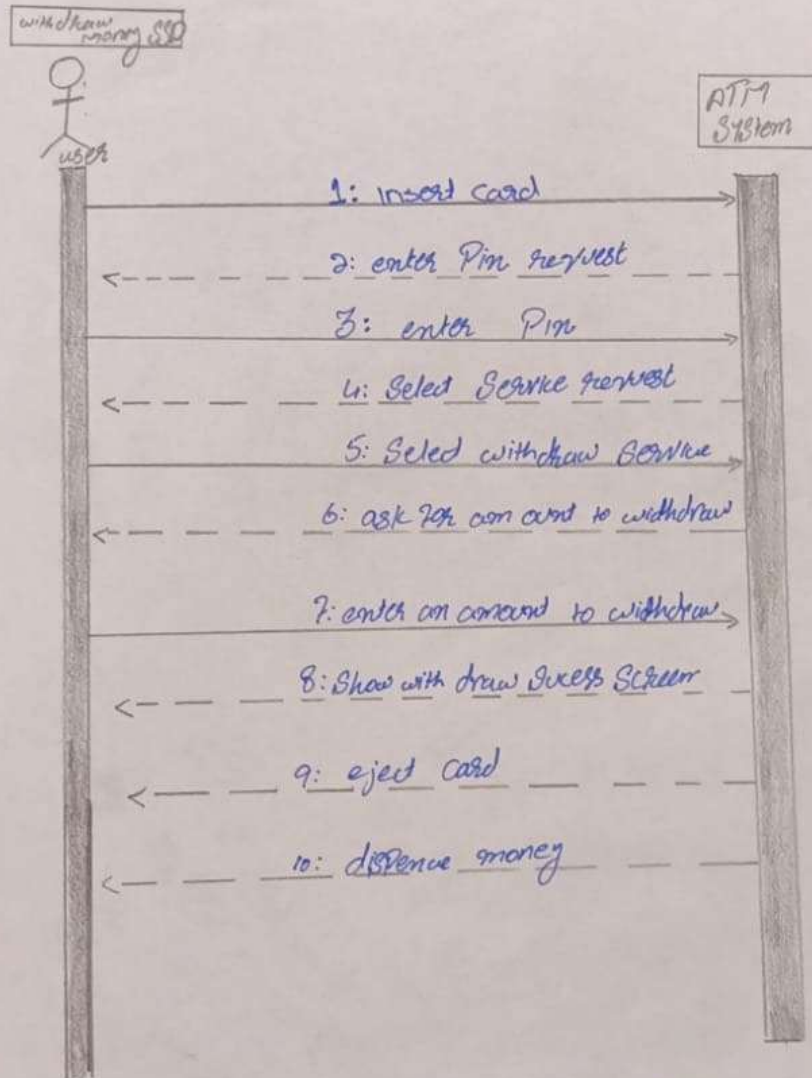 withdraw
money SSD
user
ATM
System
1: insert card
2: enter Pin request
3: enter Pin
4: Select Service request
5: Select withdraw Service
6: ask for amount to widhdraw
7: enter an amount to withdraw
8: Show with draw Sucess Screen
9: eject card
10: dispence money